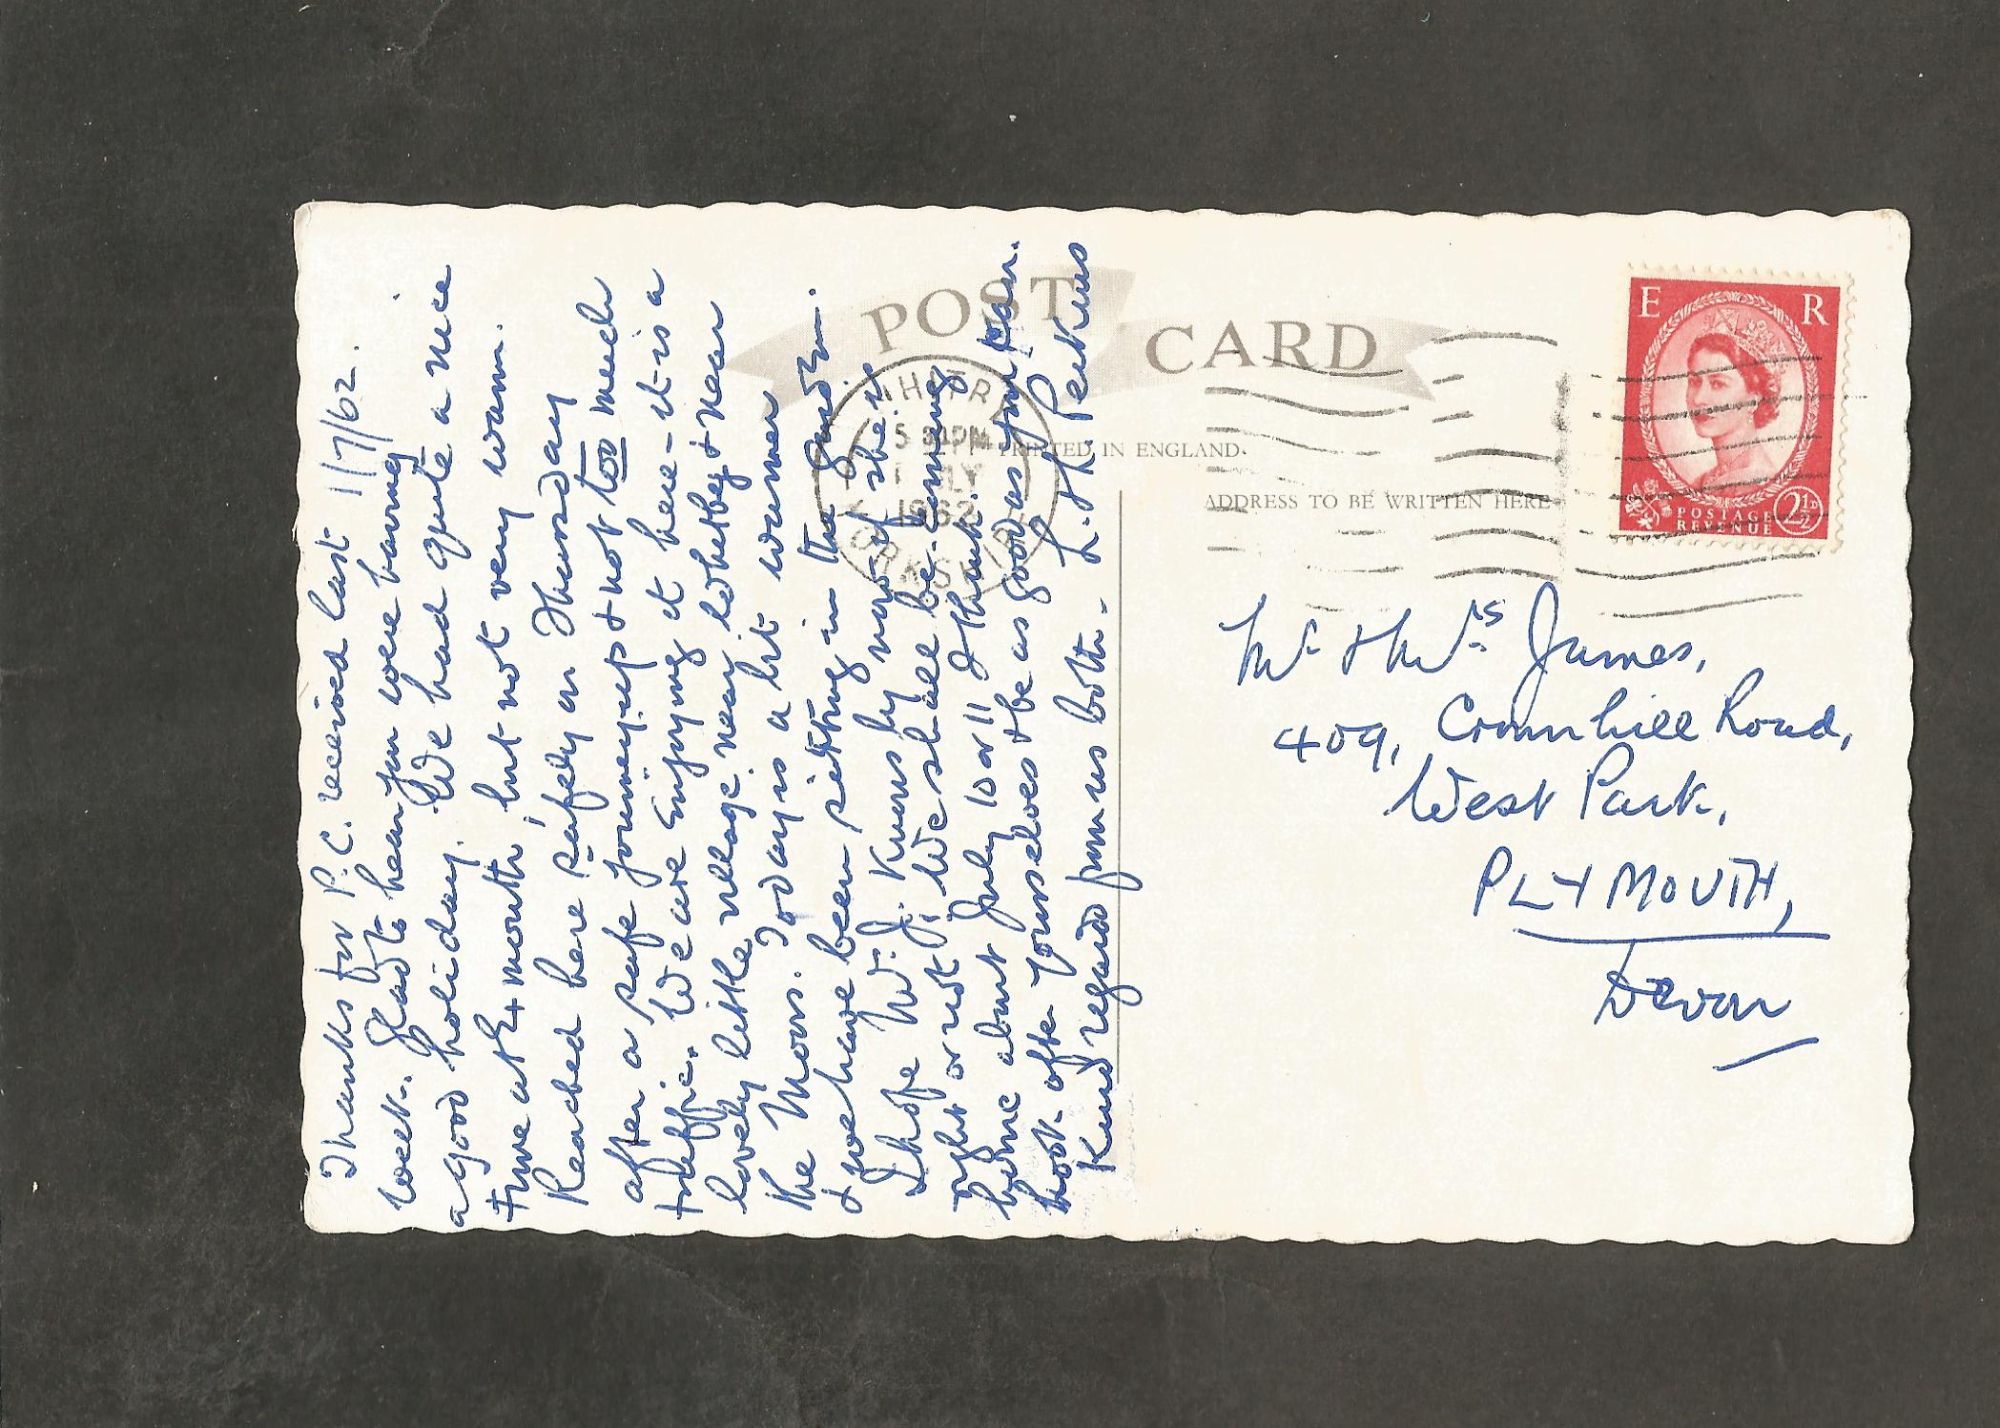 POST CARD
PRINTED IN ENGLAND
ADDRESS TO BE WRITTEN HERE
E R
POSTAGE
REVENUE
2½D
5 30 PM
1962
YORKSHIRE
1/7/62.
Thanks for P.C. received last
week. Glad to hear you were having
a good holiday. We had quite a nice
time at Exmouth, but not very warm.
Reached here safely on Thursday
after a safe journey up & not too much
traffic. We are enjoying it here - it is a
lovely little village near Whitby & near
the Moors. Today is a bit warmer
& we have been sitting in the
I hope W. J. Knows by now if she is
right or not, We shall be coming
home about July 10 or 11 I think.
Look after yourselves & be as good as you can.
Kind regards from us both. - L. H. Perkins
Mr. & Mrs James,
409, Crownhill Road,
West Park,
PLYMOUTH,
Devon